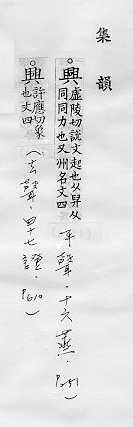 集韻
。興虛陵切說文起也从舁从
同同力也又州名文四
平聲．十六蒸．P251)
。興許應切象
也文四
(去聲．四十七證．P610)